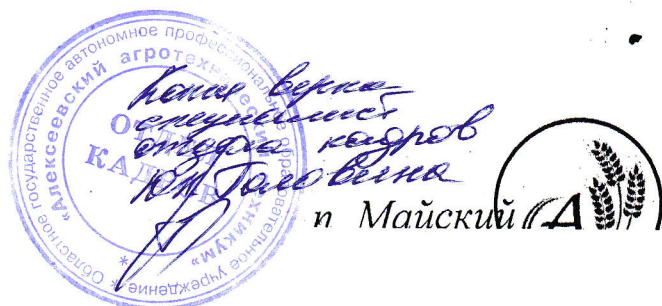 Областное государственное автономное профессиональное образовательное учреждение
«Алексеевский агротехнический техникум»
ОТДЕЛ
КАДРОВ
Копия верна
специалист
отдела кадров
Головина
п Майский